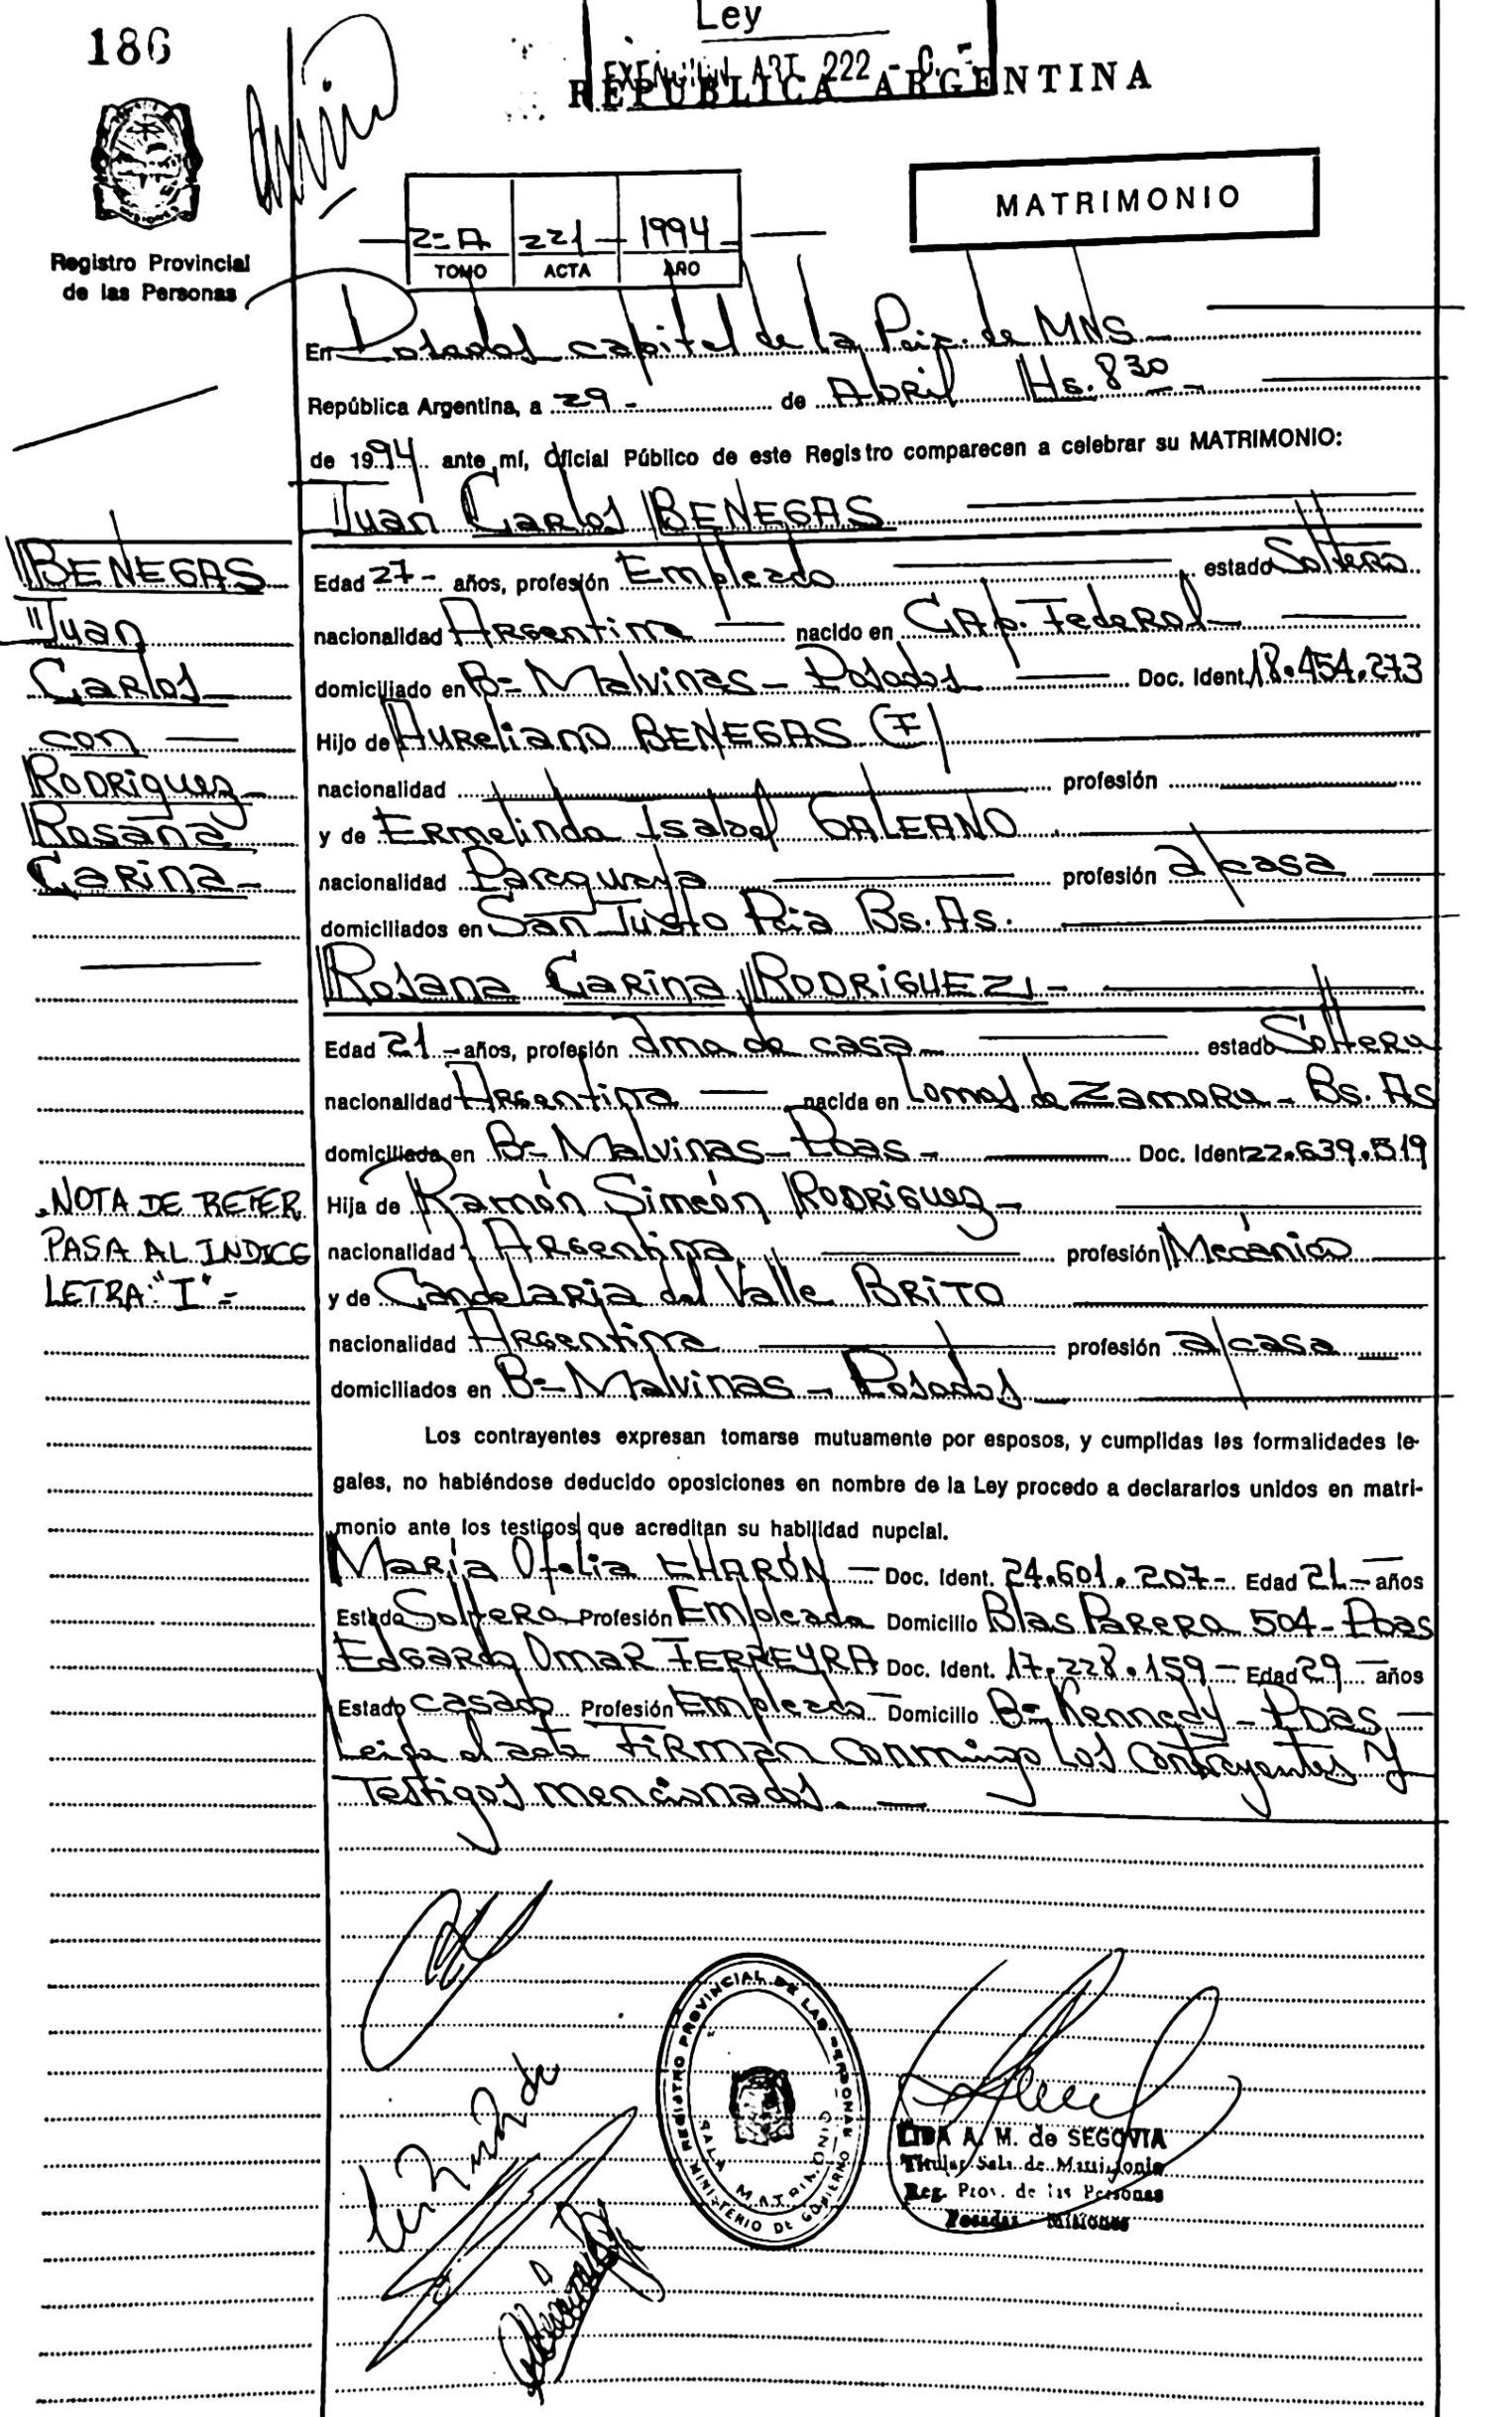 186
Ley
EXENCION ART 222 - C.
REPUBLICA ARGENTINA
MATRIMONIO
Registro Provincial
de las Personas
2-A 221 1994
TOMO ACTA AÑO
En Posadas capital de la Pcia. de MNS.
República Argentina, a 29 - de Abril Hs. 830
de 1994 ante mí, Oficial Público de este Registro comparecen a celebrar su MATRIMONIO:
Juan Carlos BENEGAS
BENEGAS
Juan
Carlos
con
Rodriguez
Rosana
Carina
Edad 27 - años, profesión Empleado estado Soltero
nacionalidad Argentina nacido en Cap. Federal
domiciliado en B- Malvinas - Posadas Doc. Ident. 18.454.273
Hijo de Aureliano BENEGAS (F)
nacionalidad profesión
y de Ermelinda Isabel GALEANO
nacionalidad Paraguaya profesión a/casa
domiciliados en San Justo Pcia Bs. As.
Rosana Carina RODRIGUEZ
Edad 21 - años, profesión ama de casa estado Soltera
nacionalidad Argentina nacida en Lomas de Zamora - Bs. As
domiciliada en B- Malvinas - Pdas - Doc. Ident 22.639.519
Hija de Ramón Simeón Rodriguez
nacionalidad Argentina profesión Mecánico
y de Candelaria del Valle BRITO
nacionalidad Argentina profesión a/casa
domiciliados en B- Malvinas - Posadas
NOTA DE REFER
PASA AL INDICE
LETRA: "I" -
Los contrayentes expresan tomarse mutuamente por esposos, y cumplidas las formalidades le-
gales, no habiéndose deducido oposiciones en nombre de la Ley procedo a declararlos unidos en matri-
monio ante los testigos que acreditan su habilidad nupcial.
María Ofelia CHARÓN - Doc. Ident. 24.601.207 - Edad 21 - años
Estado Soltera Profesión Empleada Domicilio Blas Parera 504 - Pdas
Edgardo Omar FERREYRA Doc. Ident. 17.228.159 - Edad 29 - años
Estado casado Profesión Empleado Domicilio B- Kennedy - Pdas
Leida el acta Firman conmigo los contrayentes y
Testigos mencionados. -
REGISTRO PROVINCIAL DE LAS PERSONAS
MINISTERIO DE GOBIERNO
SALA MATRIMONIO
LIDA A. M. de SEGOVIA
Titular Sala de Matrimonio
Reg. Prov. de las Personas
Posadas - Misiones